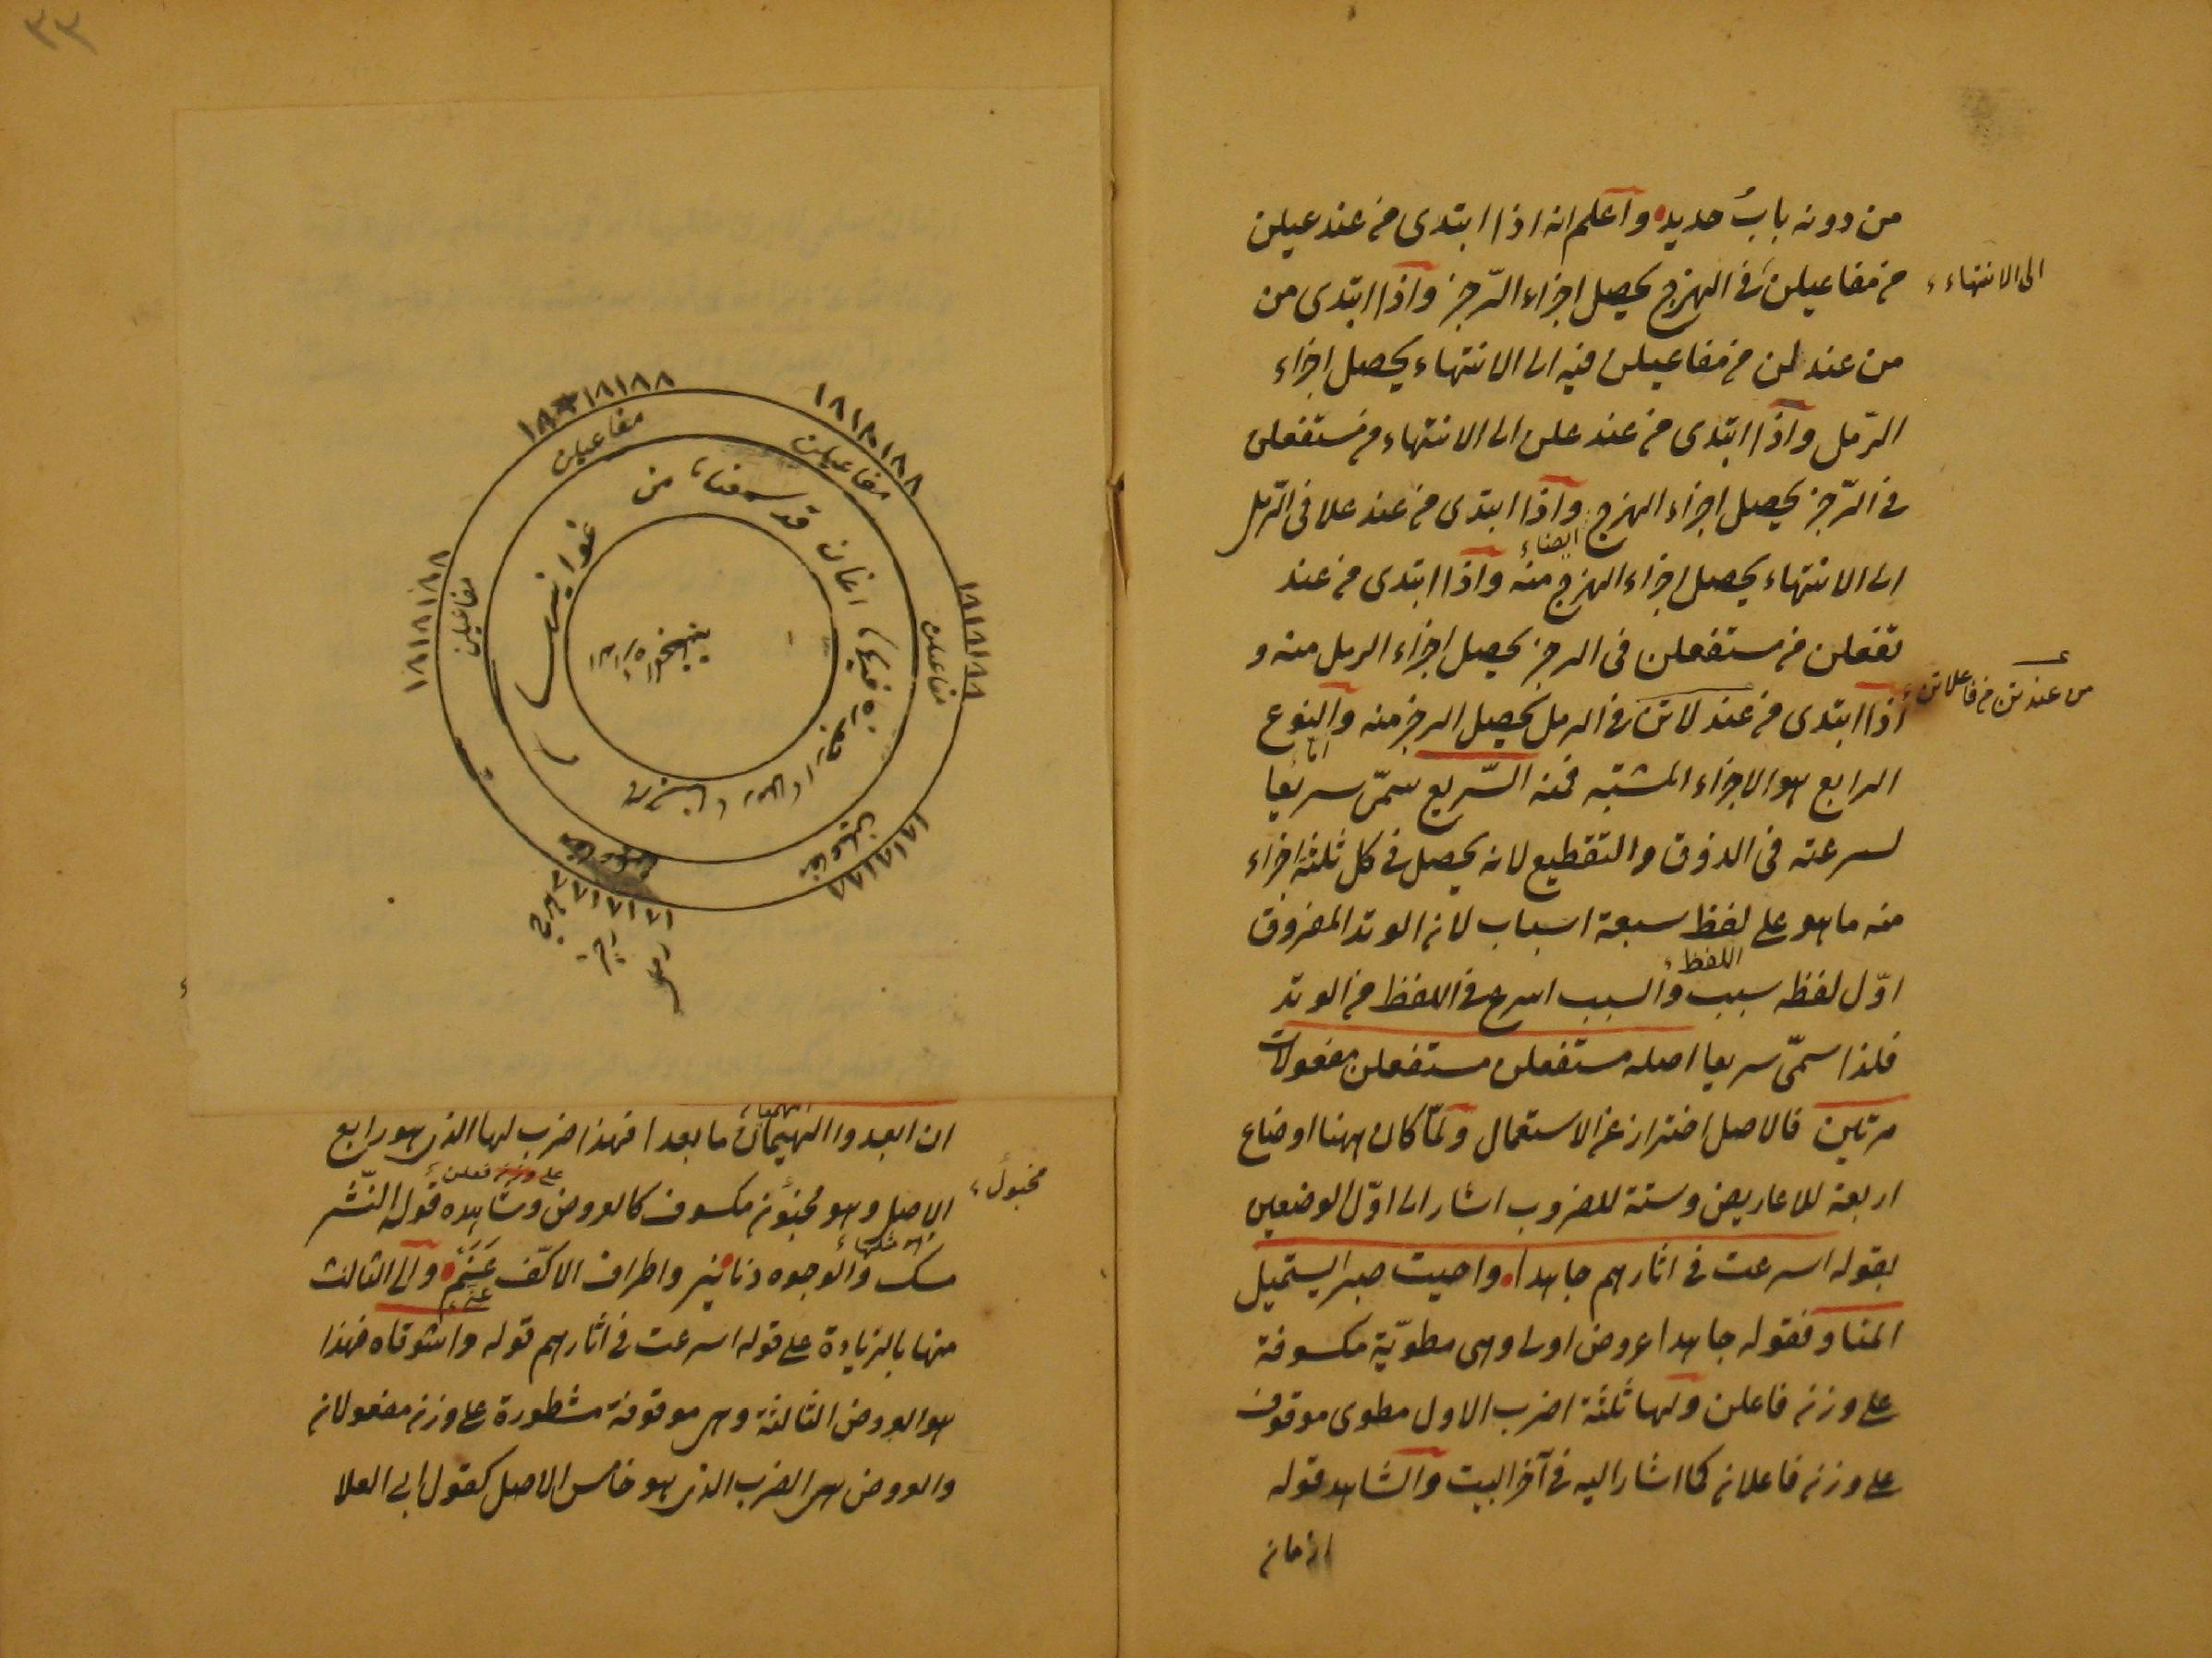 من دونه بابُ حديد واعلم انه اذا ابتدى من عند عيلن
من مفاعيلن في الهزج يحصل اجزاء الرّجز واذا ابتدى من
الى الانتهاء
من عند لن من مفاعيلن فيه الى الانتهاء يحصل اجزاء
الرّمل واذا ابتدى من عند علن الى الانتهاء من مستفعلن
في الرّجز يحصل اجزاء الهزج واذا ابتدى من عند علا في الرّمل
ايضاء
الى الانتهاء يحصل اجزاء الهزج منه واذا ابتدى من عند
تفعلن من مستفعلن في الرجز يحصل اجزاء الرمل منه و
من عند تن من فاعلاتن
اذا ابتدى من عند لاتن في الرمل يحصل الرجز منه والنوع
الرابع هو الاجزاء المشتبه فمنه السّريع سمّى سريعا
لسرعته في الذوق والتقطيع لانه يحصل في كل ثلثة اجزاء
منه ما هو على لفظ سبعة اسباب لان الوتد المفروق
اللفظ
اوّل لفظه سبب والسبب اسرع في اللفظ من الوتد
فلذا سمّى سريعا اصله مستفعلن مستفعلن مفعولات
مرتين فالاصل احتراز عن الاستعمال ولمّا كان ههنا اوضاع
اربعة للاعاريض وستة للضروب اشار الى اوّل الوضعين
بقوله اسرعت في اثارهم جاهدا واحيت صبر يستميل
المنا و فقوله جاهدا عروض اولى وهى مطويّة مكسوفة
على وزن فاعلن ولها ثلثة اضرب الاول مطوى موقوف
على وزن فاعلان كما اشار اليه في آخر البيت والشاهد قوله
ازمان
٣٣
مفاعيلن
مفاعيلن
مفاعيلن
مفاعيلن
مفاعيلن
من
اغان قد سمعناء
هزج
رجز
رمل
ان ابعدوا الهيمان ما بعدا فهذا ضرب لها الذى هو رابع
مخبول
على وزن فعلن
الاصل وهو مخبون مكسوف كالعروض وشاهده قوله النّشر
مسك والوجوه دنانير واطراف الاكّف عَنَم والى الثالث
منها بالزيادة على قوله اسرعت في اثارهم قوله واشوقاه فهذا
هو العروض الثالثة وهى موقوفة مشطورة على وزن مفعولان
والعروض هى الضرب الذى هو خامس الاصل كقول ابى العلا